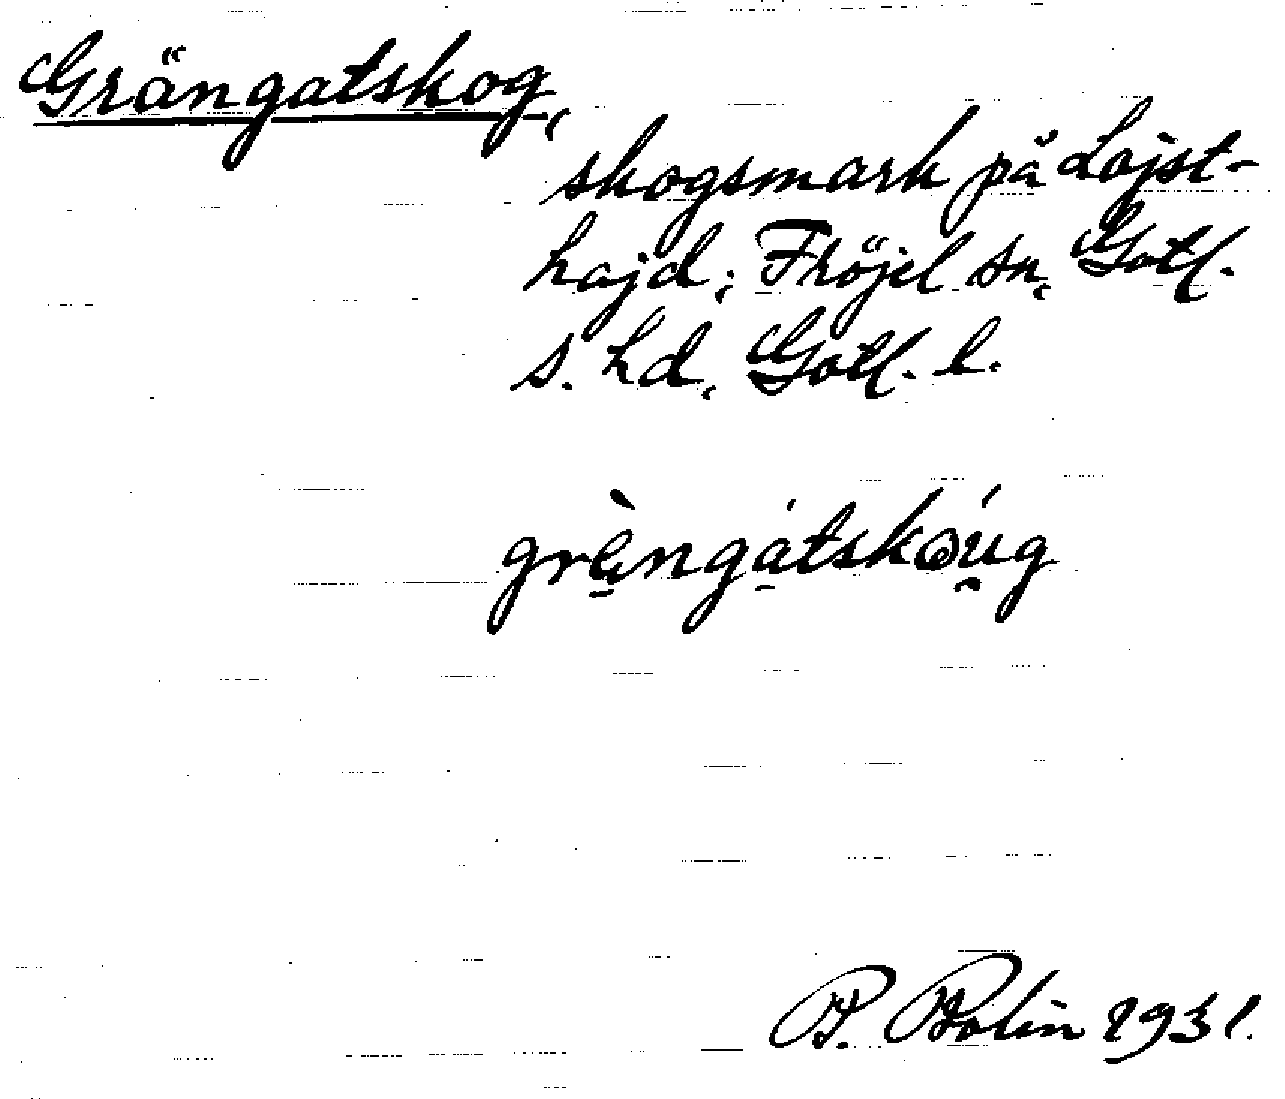 Grängatskog,
skogsmark på Lojst-
hajd; Fröjel sn, Gotl.
s. hd, Gotl. l.
grèngátskǝúg
P. Bolin 1931.